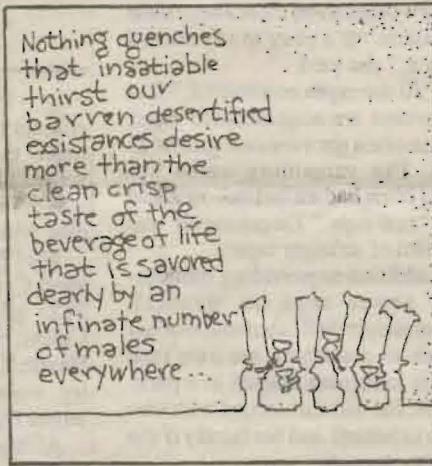 Nothing quenches
that insatiable
thirst our
barren desertified
exsistances desire
more than the
clean crisp
taste of the
beverage of life
that is savored
dearly by an
infinate number
of males
everywhere...